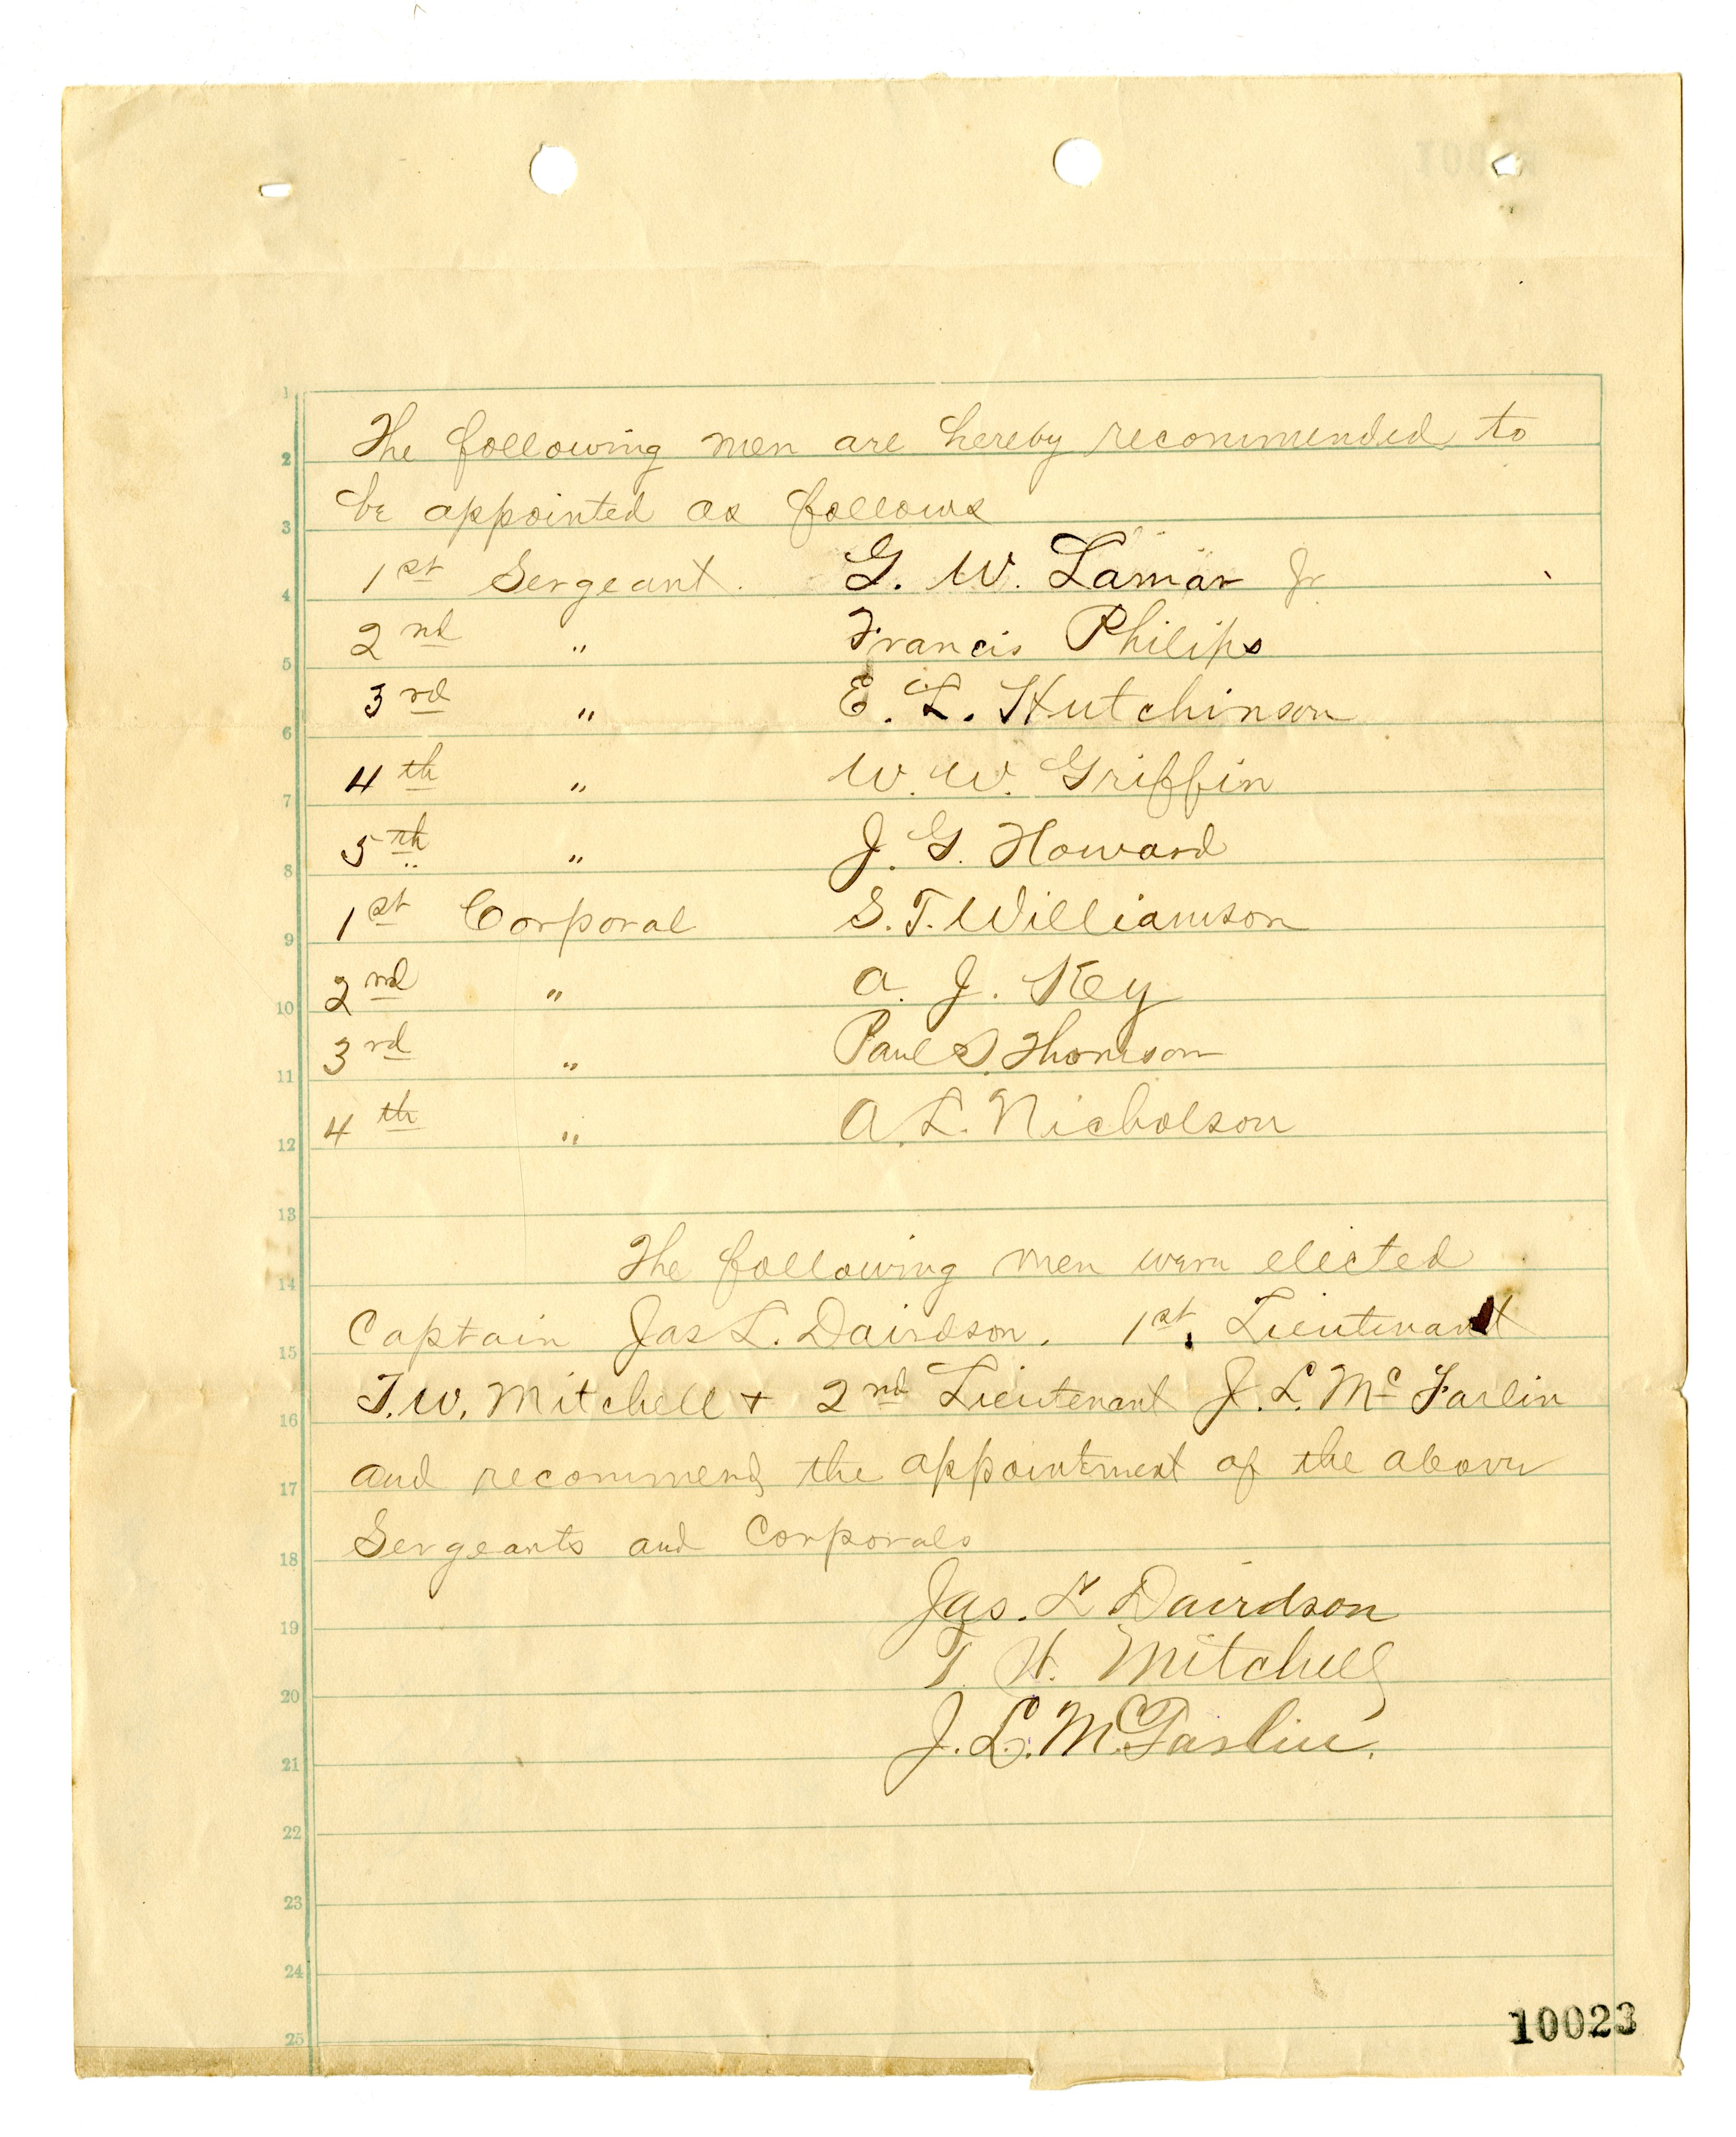 The following men are hereby recommended to
be appointed as follows
1st Sergeant. G. W. Lamar Jr
2nd " Francis Philips
3rd " E. L. Hutchinson
4th " W. W. Griffin
5th " J. G. Howard
1st Corporal S. T. Williamson
2nd " A. J. Key
3rd " Paul S. Thomson
4th " A. L. Nicholson
The following men were elected
Captain Jas L. Davidson. 1st. Lieutenant
T. W. Mitchell + 2nd Lieutenant J. L. Mc Farlin
and recommend the appointment of the above
Sergeants and Corporals
Jas. L Davidson
T W. Mitchell
J. L. McFarlin.
1
2
3
4
5
6
7
8
9
10
11
12
13
14
15
16
17
18
19
20
21
22
23
24
25
10023